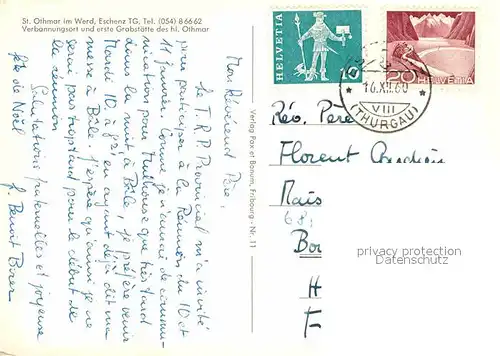 St. Othmar im Werd, Eschenz TG, Tel. (054) 8 66 62
Verbannungsort und erste Grabstätte des hl. Othmar
Mon Révérend Père,
Le T.R.P. Provincial m'a invité
pour participer à la Réunion du 10 et
11 janvier. Comme je n'aurai de commu-
nication pour Mulhouse que très tard
dans la nuit à Bâle, je préfère venir
Mardi 10, à en ayant déjà dit ma
messe à Bâle. J'espère qu'ainsi je ne
serai pas trop tard pour le début de
la réunion
Salutations fraternelles et joyeuse
fête de Noël
f. Benoît
Verlag Pax et Bonum, Fribourg - Nr. 11
HELVETIA
10
20 HELVETIA
16.XII.60
VIII
(THURGAU)
Rév. Père
Florent
Mais
68
Bon
H
F
privacy protection
watermark